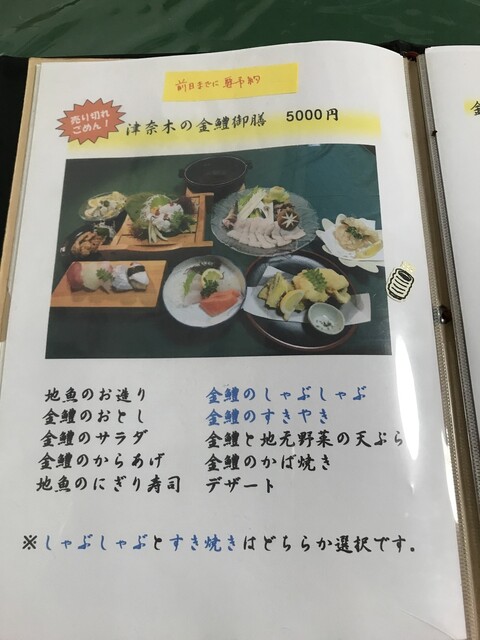 前日までに要予約
売り切れ
ごめん！
津奈木の金鱧御膳 5000円
地魚のお造り
金鱧のおとし
金鱧のサラダ
金鱧のからあげ
地魚のにぎり寿司
金鱧のしゃぶしゃぶ
金鱧のすきやき
金鱧と地元野菜の天ぷら
金鱧のかば焼き
デザート
※しゃぶしゃぶとすき焼きはどちらか選択です。